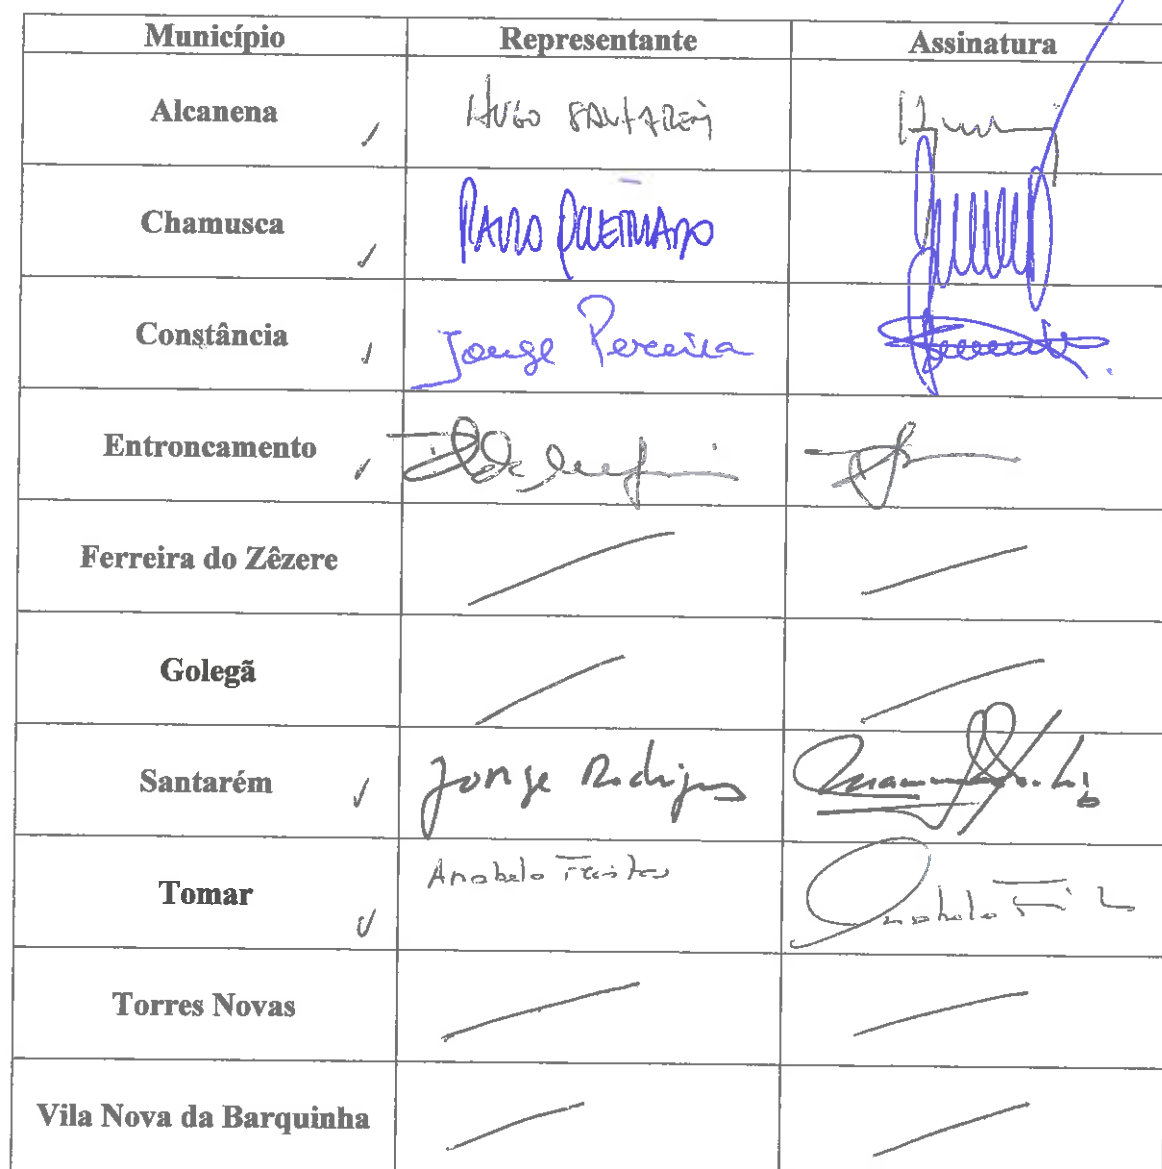 Município Representante Assinatura
Alcanena Hugo Santarém
Chamusca Paulo Queimado
Constância Jorge Pereira
Entroncamento
Ferreira do Zêzere
Golegã
Santarém Jorge Rodrigues
Tomar Anabela Freitas Anabela
Torres Novas
Vila Nova da Barquinha